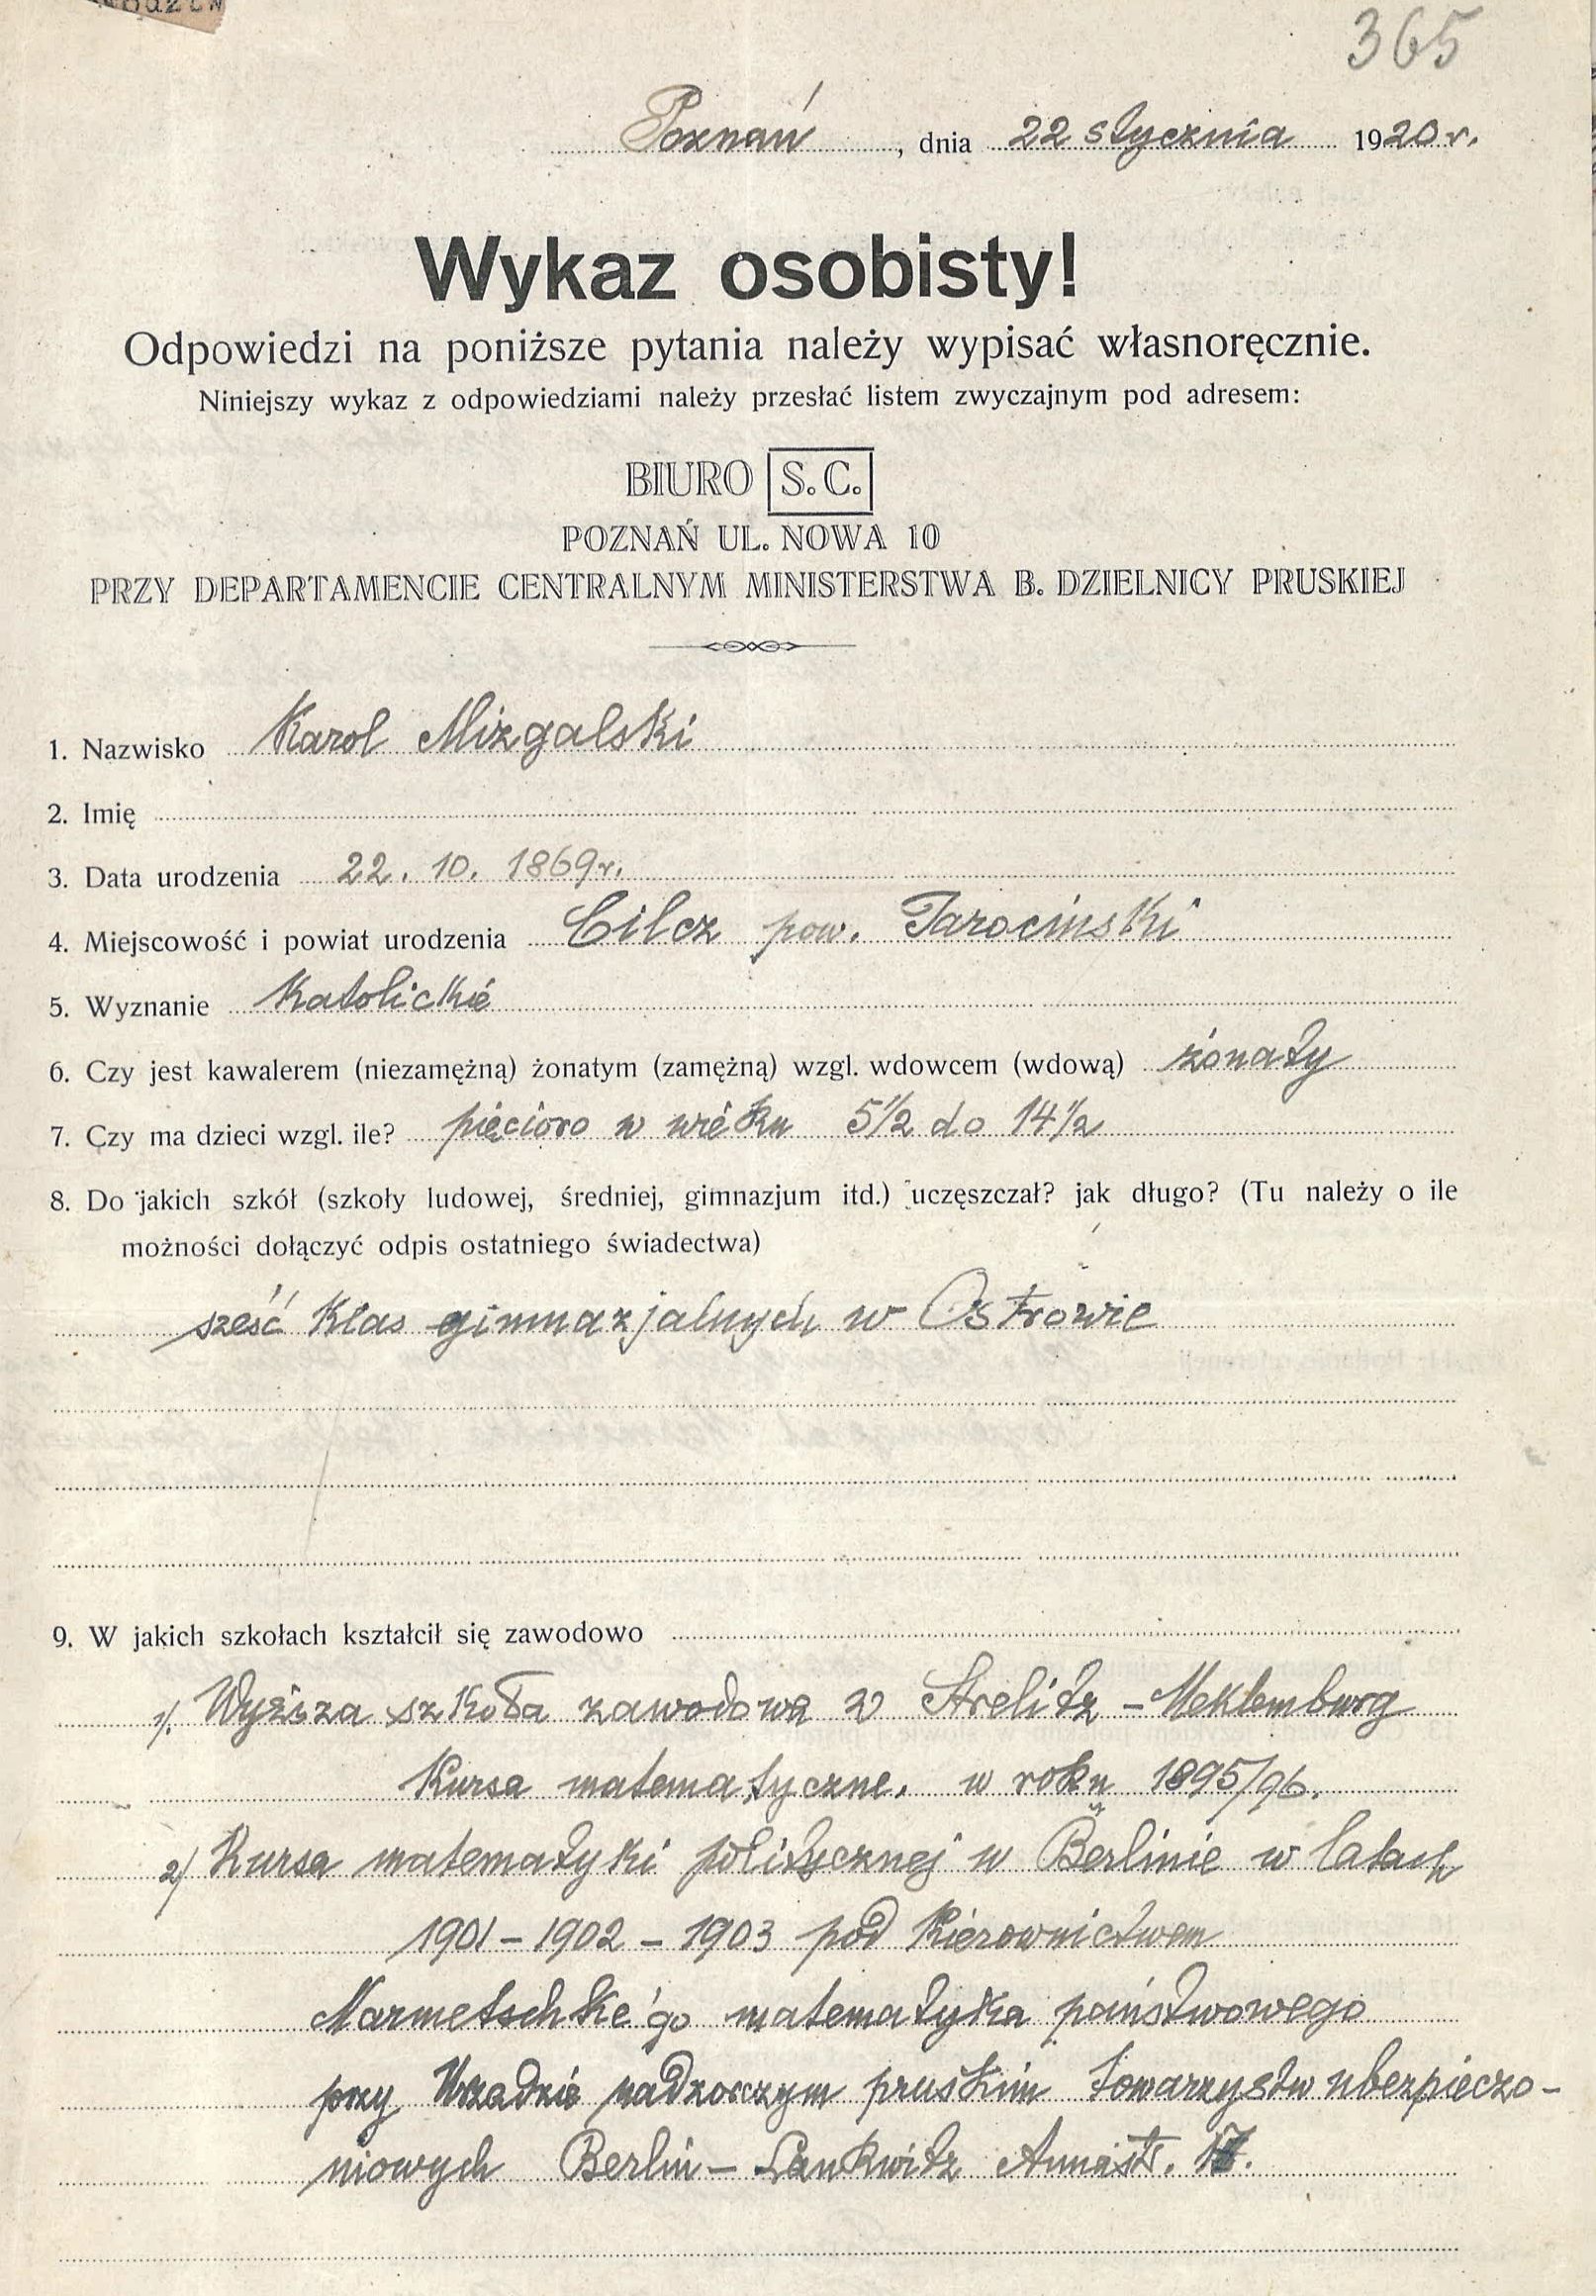 365
Poznań, dnia 22 stycznia 1920 r.
Wykaz osobisty!
Odpowiedzi na poniższe pytania należy wypisać własnoręcznie.
Niniejszy wykaz z odpowiedziami należy przesłać listem zwyczajnym pod adresem:
BIURO S. C.
POZNAŃ UL. NOWA 10
PRZY DEPARTAMENCIE CENTRALNYM MINISTERSTWA B. DZIELNICY PRUSKIEJ
1. Nazwisko Karol Mizgalski
2. Imię
3. Data urodzenia 22. 10. 1869 r.
4. Miejscowość i powiat urodzenia Cilcz pow. Jarociński
5. Wyznanie Katolickie
6. Czy jest kawalerem (niezamężną) żonatym (zamężną) wzgl. wdowcem (wdową) żonaty
7. Czy ma dzieci wzgl. ile? pięcioro w wieku 5½ do 14½
8. Do jakich szkół (szkoły ludowej, średniej, gimnazjum itd.) uczęszczał? jak długo? (Tu należy o ile
możności dołączyć odpis ostatniego świadectwa)
sześć klas gimnazjalnych w Ostrowie
9. W jakich szkołach kształcił się zawodowo
1). Wyższa szkoła zawodowa w Strelitz – Meklemburg
Kursa matematyczne. w roku 1895/96.
2) Kursa matematyki politycznej w Berlinie w latach
1901 – 1902 – 1903 pod kierownictwem
Marmetschke'go matematyka państwowego
przy Urzadzie nadzorczym pruskim towarzystw ubezpieczo-
niowych Berlin – Lankwitz Annastr.